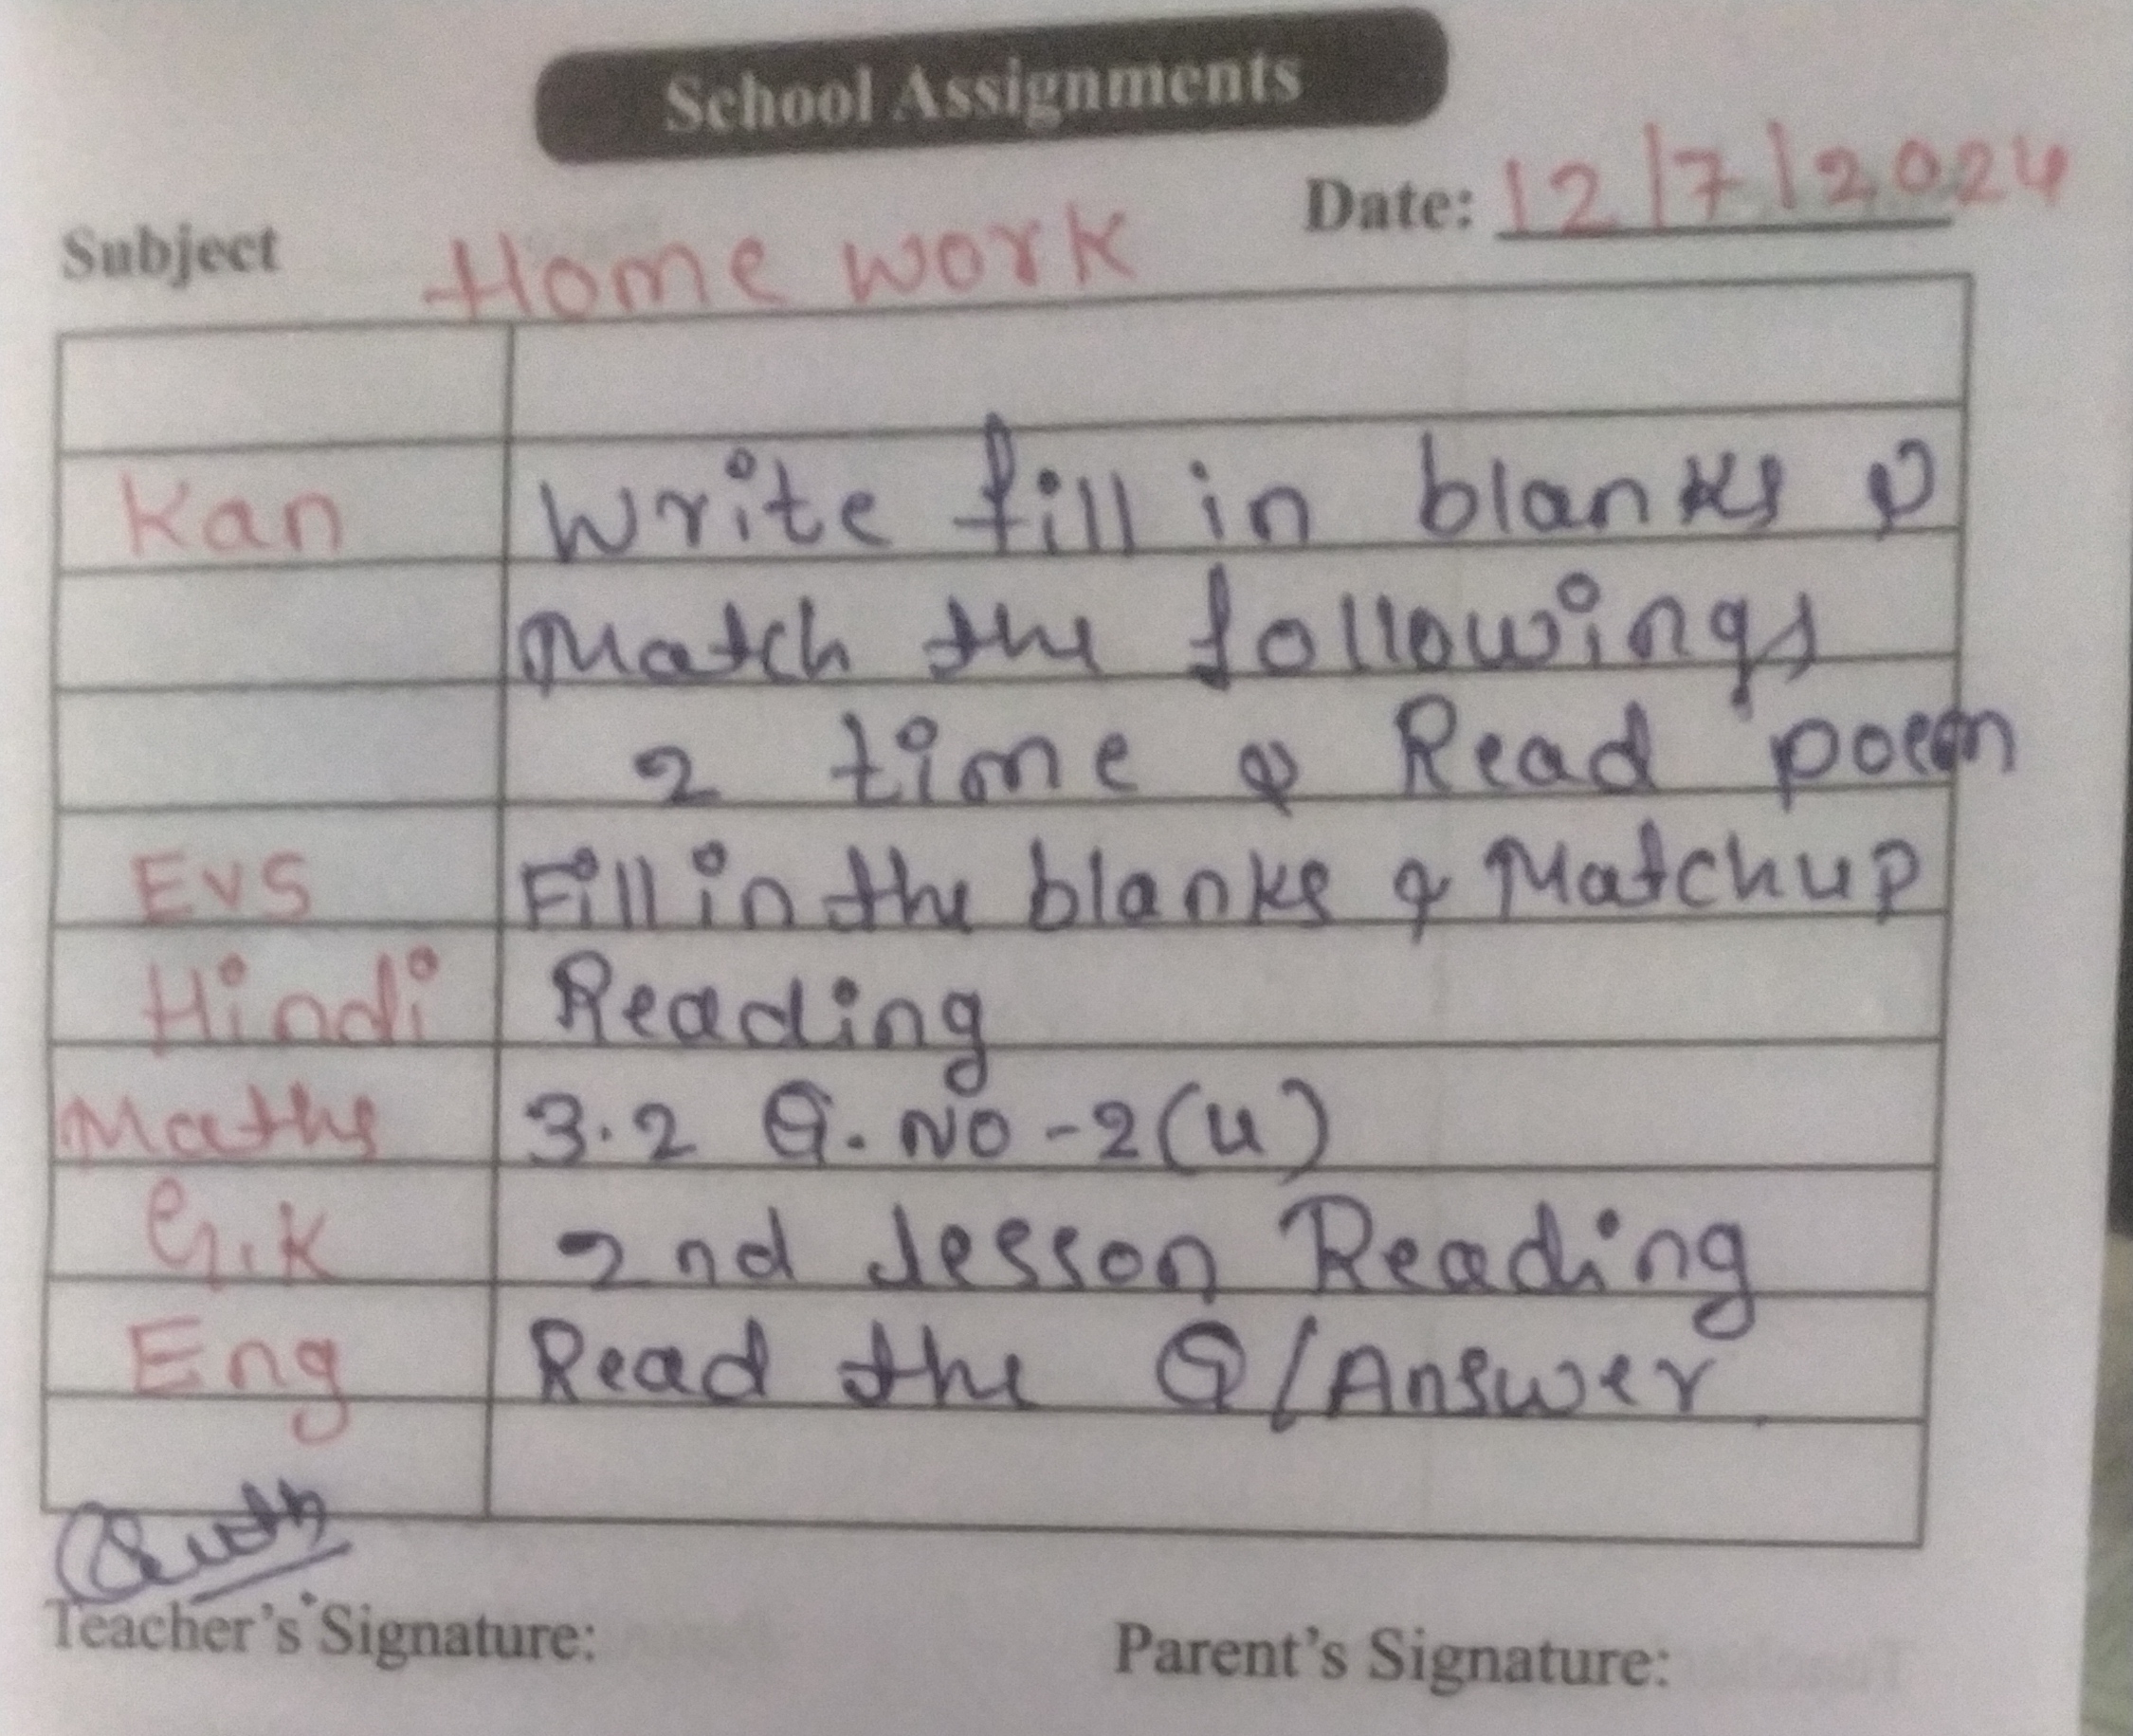 School Assignments
Date: 12/7/2024
Subject Home work
Kan Write fill in blanks &
Match the followings
2 time & Read poem
EVS Fill in the blanks & Matchup
Hindi Reading
Maths 3.2 Q. No - 2 (4)
G.K 2nd lesson Reading
Eng Read the Q/Answer
Teacher's Signature: Parent's Signature: